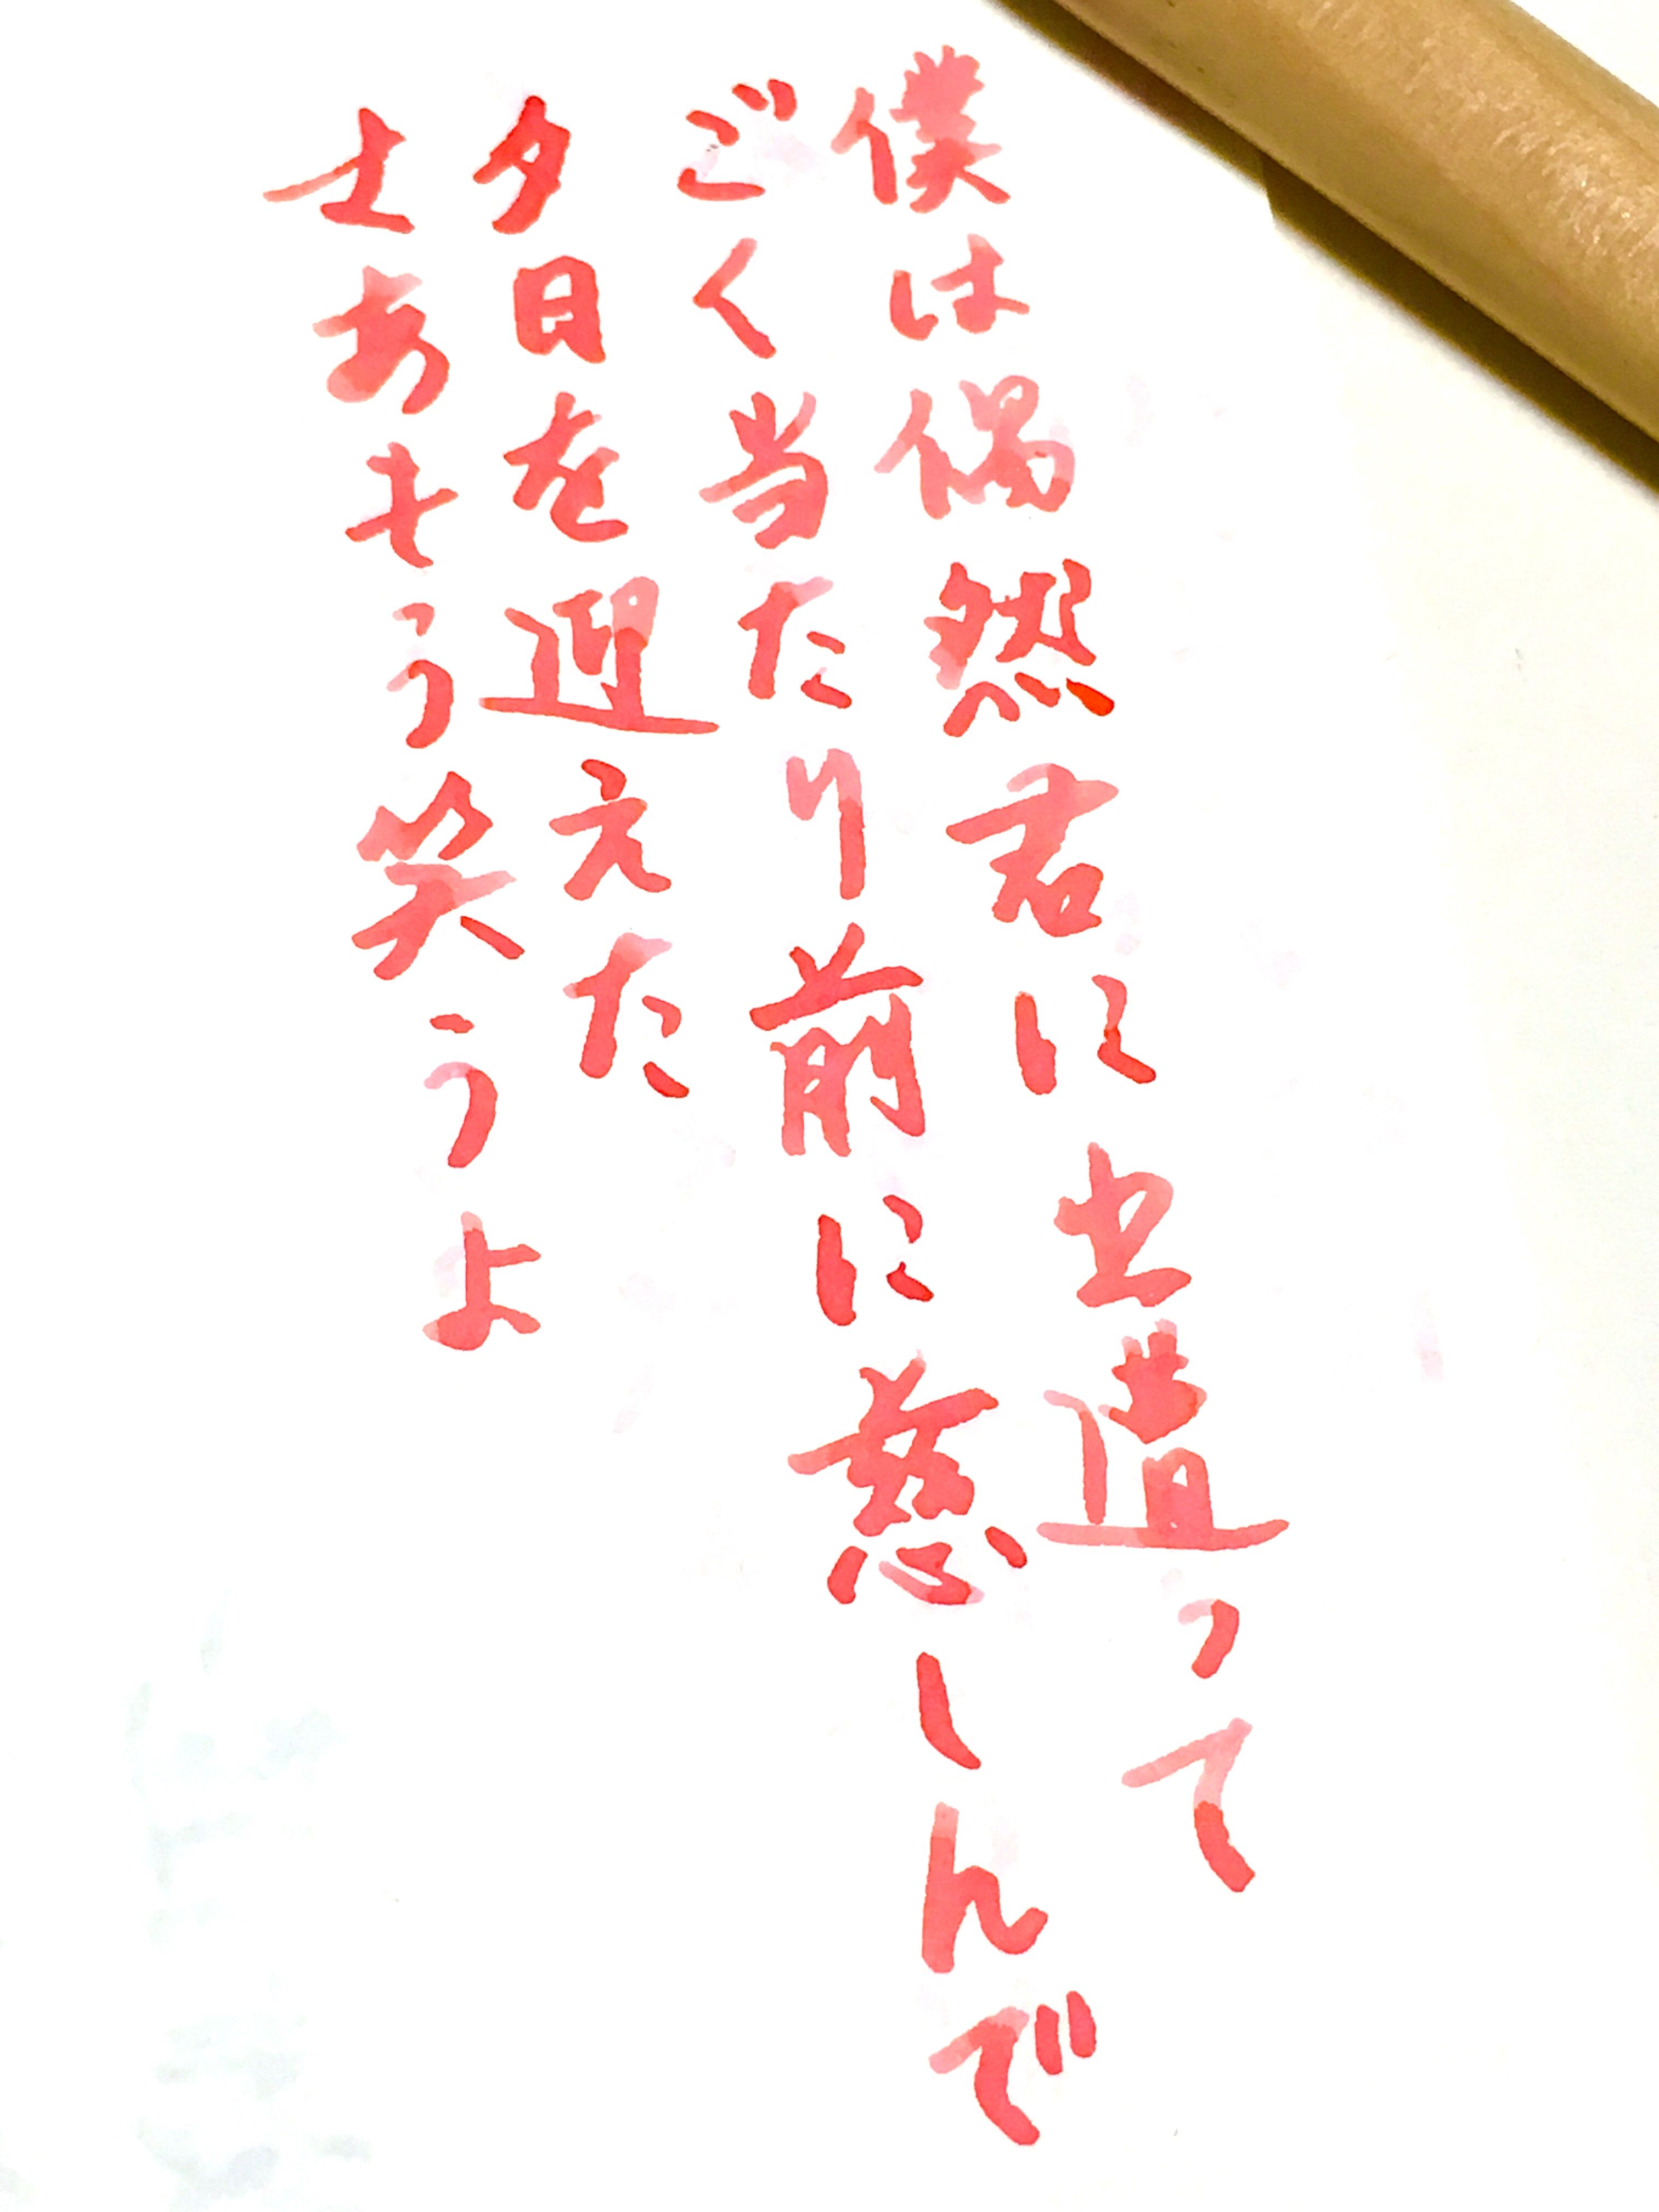 僕は偶然君に出遭って
ごく当たり前に慈しんで
夕日を迎えた
さあもう笑うよ